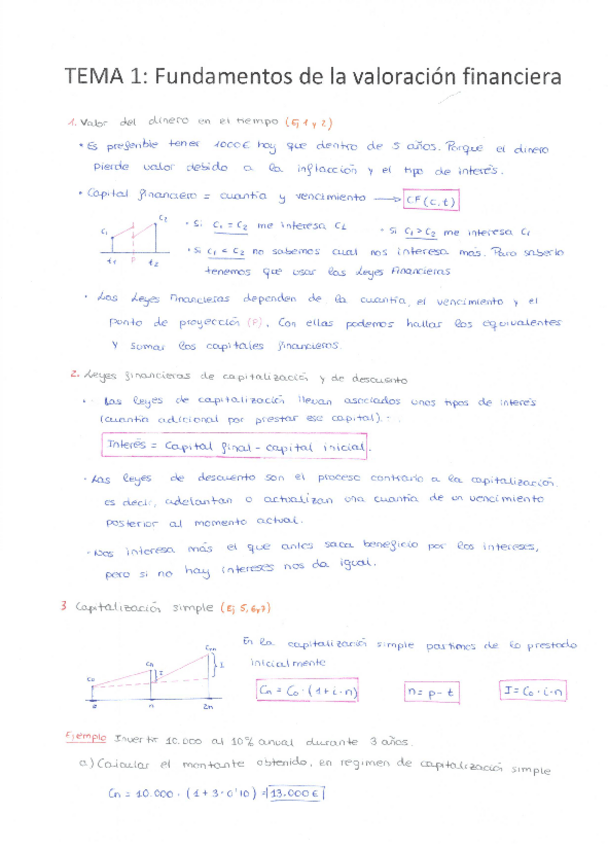 TEMA 1: Fundamentos de la valoración financiera
1. Valor del dinero en el tiempo (Ej 1 y 2)
• Es preferible tener 1000€ hoy que dentro de 5 años. Porque el dinero
pierde valor debido a la inflacción y el tipo de interés.
• Capital financiero = cuantía y vencimiento → CF(c,t)
C1 C2 t1 P t2
• Si C1 = C2 me interesa C1 • Si C1 > C2 me interesa C1
• Si C1 < C2 no sabemos cual nos interesa más. Para saberlo
tenemos que usar las Leyes Financieras
• Las Leyes Financieras dependen de la cuantía, el vencimiento y el
punto de proyección (P). Con ellas podemos hallar los equivalentes
y sumar los capitales financieros.
2. Leyes financieras de capitalización y de descuento
• Las leyes de capitalización llevan asociados unos tipos de interés
(cuantía adicional por prestar ese capital).
Interés = Capital final - capital inicial.
• Las leyes de descuento son el proceso contrario a la capitalización.
es decir, adelantan o actualizan una cuantía de un vencimiento
posterior al momento actual.
• Nos interesa más el que antes saca beneficio por los intereses,
pero si no hay intereses nos da igual.
3 Capitalización simple (Ej 5, 6 y 7)
En la capitalización simple partimos de lo prestado
inicialmente
C0 Cn I C2n I 0 n 2n
Cn = C0 · (1 + i · n) n = p - t I = C0 · i · n
Ejemplo Invertir 10.000 al 10% anual durante 3 años.
a) Calcular el montante obtenido, en régimen de capitalización simple
Cn = 10.000 · (1 + 3 · 0'10) = 13.000€